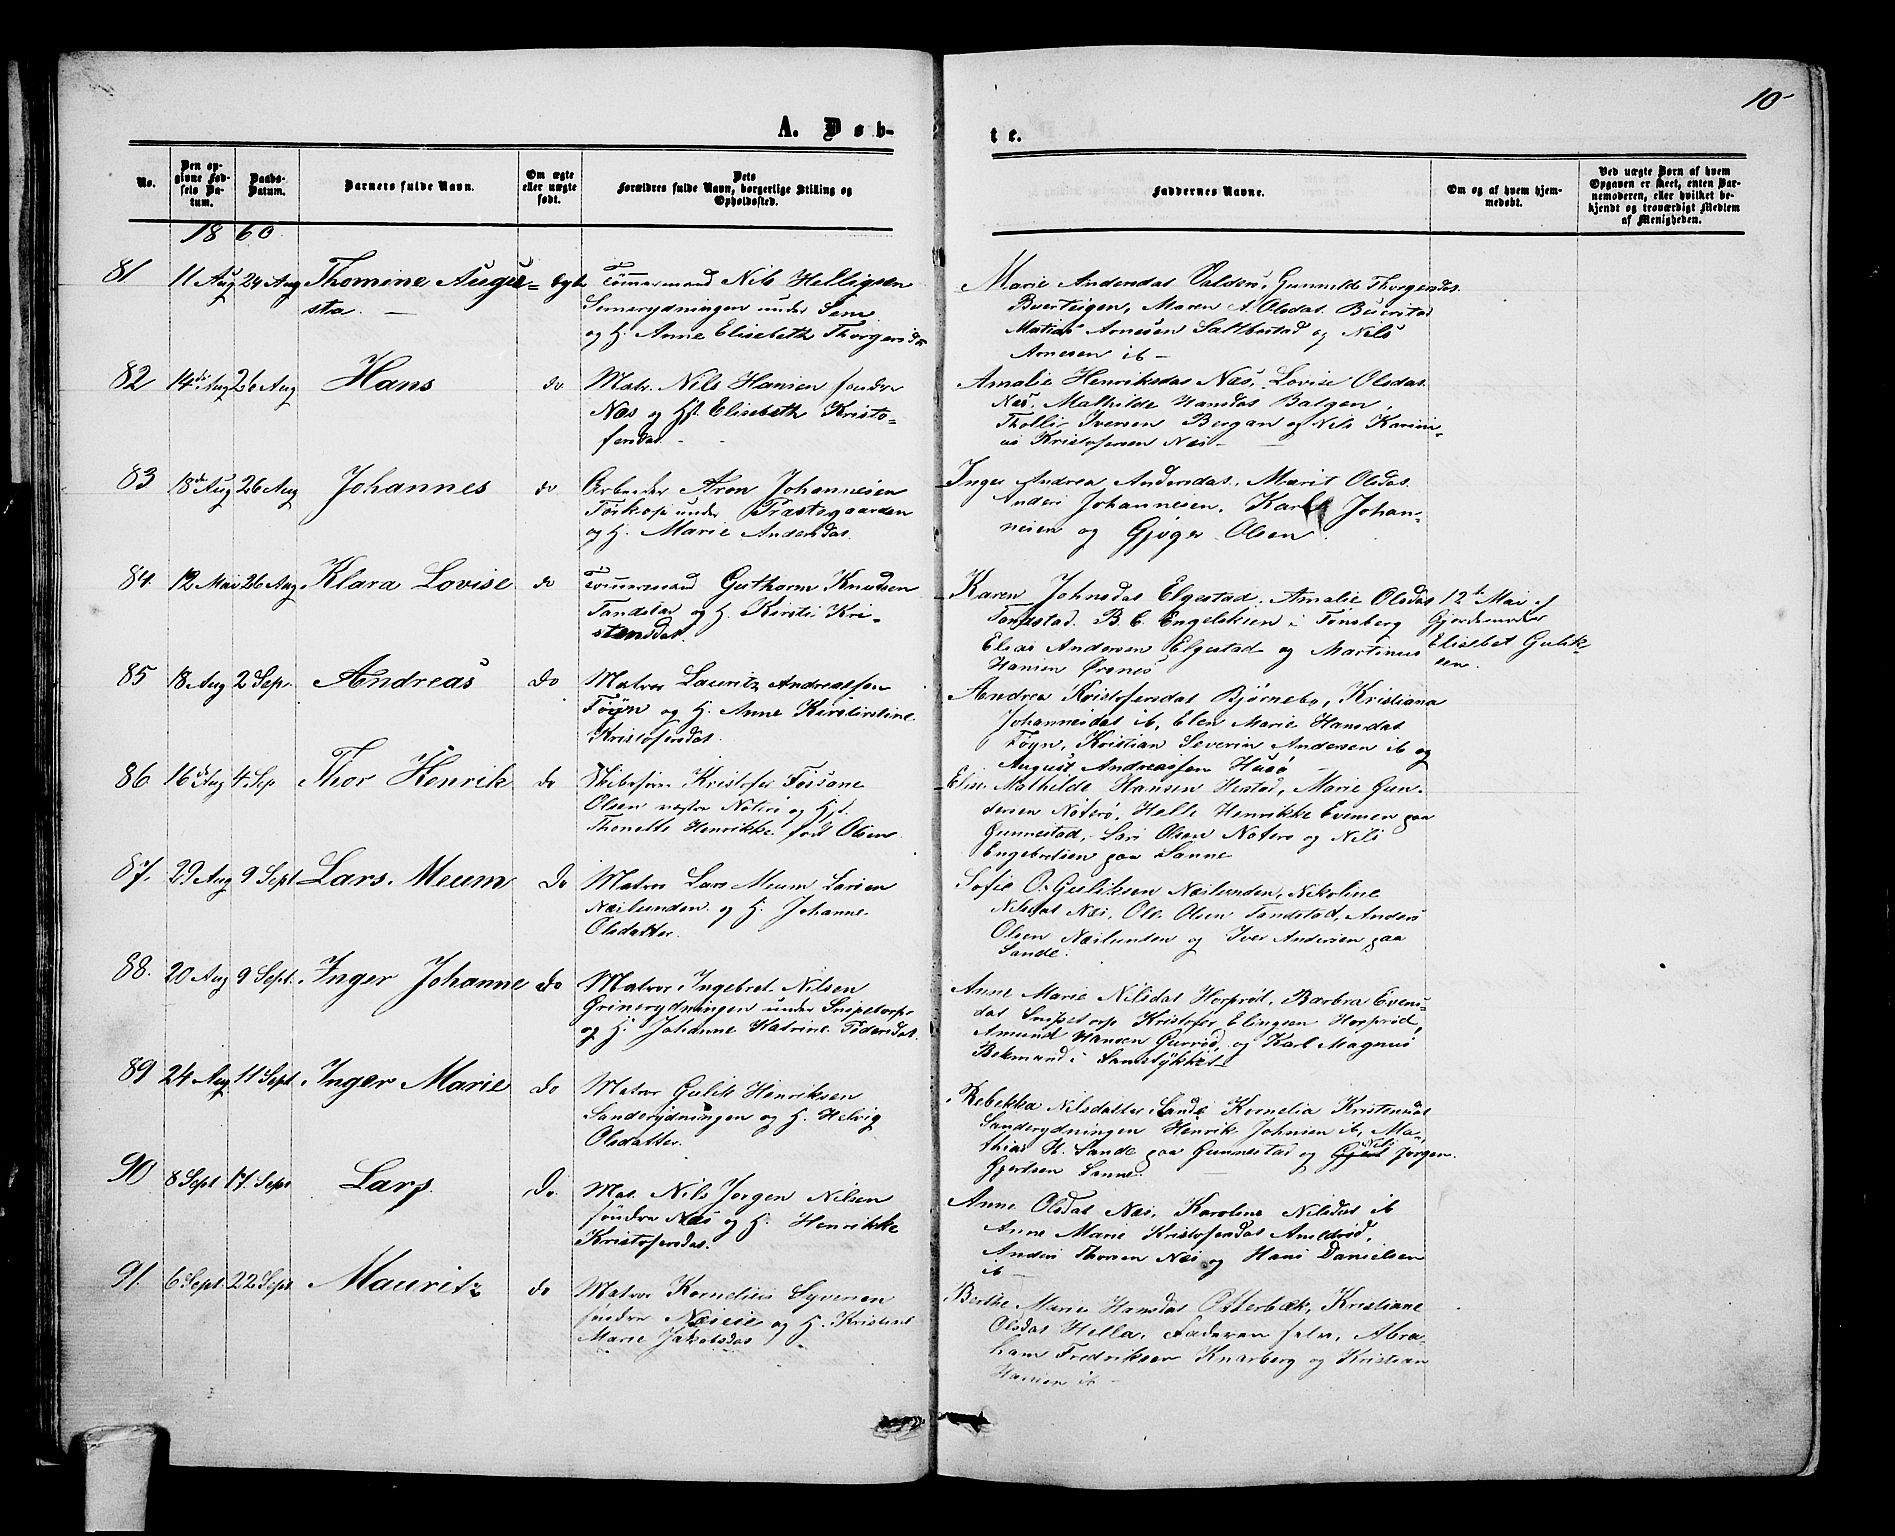 10
A. Døb-
te.
No.
Den op-
givne Fød-
sels Da-
tum.
Daabs-
Datum.
Barnets fulde Navn.
Om ægte
eller uægte
født.
Dets
Forældres fulde Navn, borgerlige Stilling og
Opholdssted.
Faddernes Navne.
Om og af hvem hjem-
medøbt.
Ved uægte Børn af hvem
Opgaven er skeet, enten Bar-
nemoderen, eller hvilket be-
kjendt og troværdigt Medlem
af Menigheden.
1860
81 11 Aug 24 Aug Thomine Augu=
sta. —
Egte
Tömmermand Nils Helligsen
Semsrydningen under Sem
og H. Anne Elisabeth Thorgersda
Marie Andersdat Gunnilde Thorgersdat
Maren A. Olsdat
Mathias Arnesen Saltbustad og Nils
Arnesen ib —
82 14de Aug 26 Aug Hans do
Matr. Nils Hansen søndre
Næs og H. Elisabeth Kristo=
fersdat. -
Amalie Henriksdat Næs, Lovise Olsdat
Næs, Mathilde Hansdat Bergan,
Tholli Iversen Bergan og Nils Karini=
us Kristofersen Næs —
83 18de Aug 26 Aug Johannes do
Arbeider Aron Johannesen
Torkop under Præstgaarden
og H. Marie Andersdat.
Inger Andrea Andersdat, Marit Olsdat,
Anders Johannesen, Karl Johan=
nesen og Gjøger Olsen.
84. 12 Mai 26 Aug Klara Lovise do
Tömmermand Guthorm Knudsen
Tandstad og H. Kirsti Kri=
stensdat.
Karen Johnsdat Elgestad, Amalie Olsdat
Tandstad, B. C. Engelsksen i Tønsberg
Elias Andersen Elgestad og Martinus
Hansen Ørsnes
12te Mai af
Gjordemoder
Elisabet Gulik=
sen.
85 18 Aug 2 Sep. Andreas do
Matros Lauritz Andreassen
Føyn og H. Anne Kirstirstine
Kristofersdat.
Andrea Kristofersdat Bjørnebo, Kristiana
Johannesdat ib, Elen Marie Hansdat
Føyn, Kristian Severin Andersen ib og
August Andreassen Husø
86 16de Aug 4 Sep Thor Henrik do
Skibsfører Kristofer Fossane
Olsen vestre Nøterø og H.
Thonette Henrikke født Olsen.
Elise Mathilde Hansen Hestad, Marie Gun=
dersen Nøterø, Helle Henrikke Evensen paa
Gunnestad, Lars Olsen Nøterø og Nils
Engebretsen paa Sanne
87. 29 Aug 9 Sept Lars Meum Do
Matros Lars Meum Larsen
Næslunden og H. Johanne
Olsdatter.
Sofie O. Guliksen Næslunden, Nikoline
Nilsdat Næs, Ole Olsen Tandstad, Anders
Olsen Næslunden og Iver Andersen paa
Sande.
88. 20 Aug 9 Sept. Inger Johanne do
Matros Ingebret Nilsen
Grinerydningen under Snipetorp
og H. Johanne Katrine Pedersdat.
Anne Marie Nilsdat Horprød, Barbra Evens
dat Snipetorp Kristofer Elingsen Horprød,
Amund Hansen og Karl Magnus
Bekmand i Sandstykket
89 24 Aug. 11 Sept Inger Marie do
Matros Gulik Henriksen
Sanderydningen og H. Helvig
Olsdatter.
Rebekka Nilsdatter Sande Kornelia Kristensdat
Sanderydningen Henrik Johnsen ib, Ma=
thias H. Sande paa Gunnestad og Nils Jørgen
Gjertsen Sanne.
90 8 Sept 17. Sept Lars. Do.
Mat. Nils Jørgen Nilsen
søndre Næs og H. Henrikke
Kristofersdat.
Anne Olsdat Næs, Karoline Nilsdat ib
Anne Marie Kristofersdat Amlerød,
Anders Thorsen Næs og Hans Danielsen
ib —
91. 6 Sept. 22 Sept Mauritz do
Matros Kornelius Syversen
søndre og H. Kristine
Marie Jakobsdat
Berthe Marie Hansdat Otterbæk, Kristiane
Olsdat Hella, Faderen selv, Abra=
ham Fredriksen Knarberg og Kristian
Hansen ib —